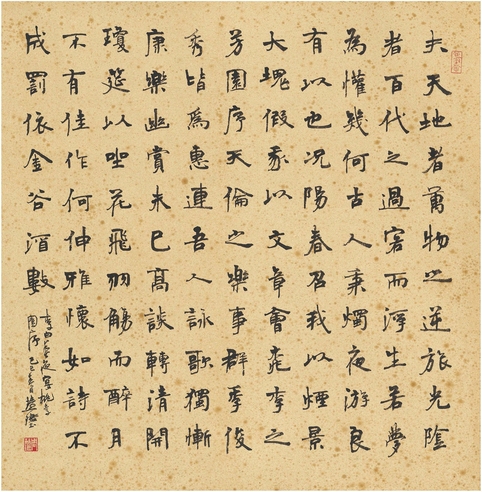 夫天地者萬物之逆旅光陰
者百代之過客而浮生若夢
為懽幾何古人秉燭夜游良
有以也況陽春召我以煙景
大塊假我以文章會桃李之
芳園序天倫之樂事群季俊
秀皆為惠連吾人詠歌獨慚
康樂幽賞未已高談轉清開
瓊筵以坐花飛羽觴而醉月
不有佳作何伸雅懷如詩不
成罰依金谷酒數
李白春夜宴桃李
園序